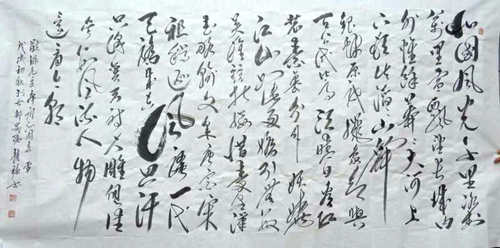 北国风光千里冰封
万里雪飘望长城内
外惟馀莽莽大河上
下顿失滔滔山舞
银蛇原驰蜡象欲与
天公试比高须晴日看红
装素裹分外妖娆
江山如此多娇引无数
英雄竞折腰惜秦皇汉
武略输文采唐宗宋
祖稍逊风骚一代
天骄成吉思汗
只识弯弓射大雕俱往
矣数风流人物
还看今朝